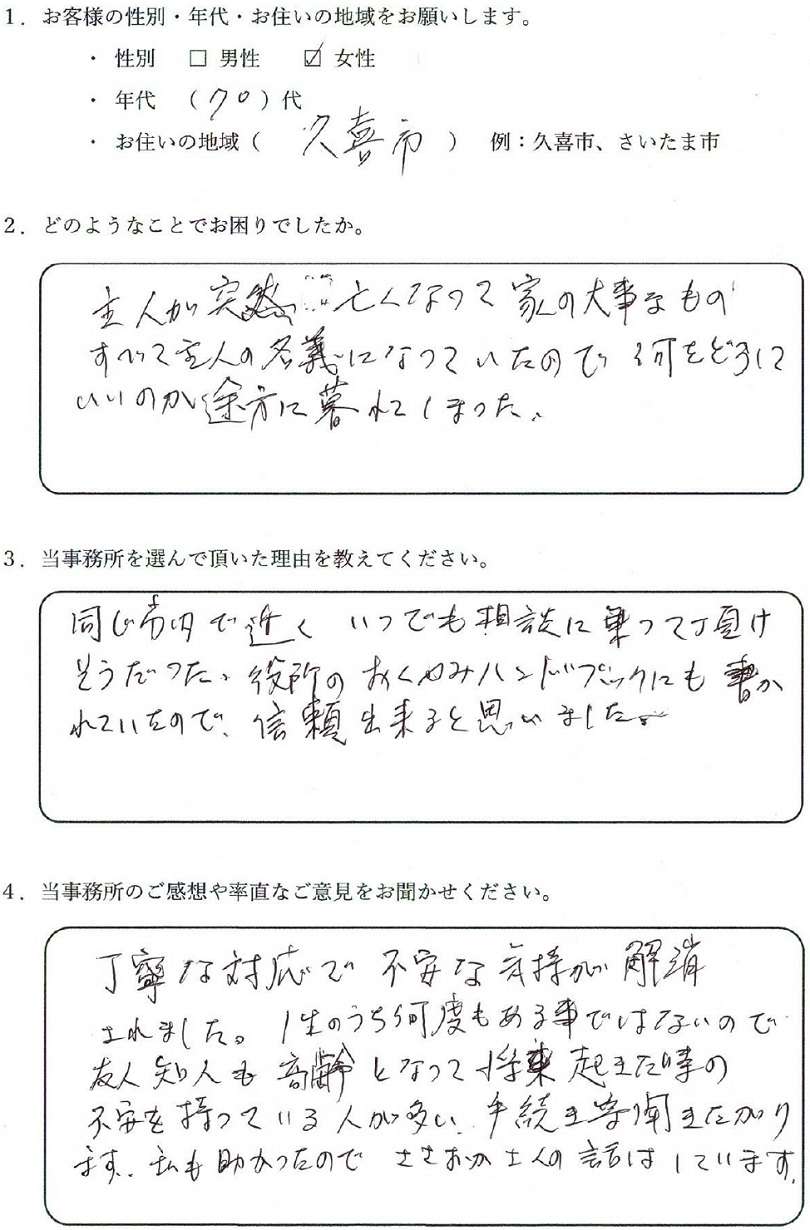 1．お客様の性別・年代・お住いの地域をお願いします。
・ 性別 □ 男性 ☑ 女性
・ 年代 （70）代
・ お住いの地域（ 久喜市 ） 例：久喜市、さいたま市
2．どのようなことでお困りでしたか。
主人が突然 亡くなって家の大事なもの
すべて主人の名義になっていたので何をどうして
いいのか途方に暮れてしまった。
3．当事務所を選んで頂いた理由を教えてください。
同じ市内で近く いつでも相談に乗って頂け
そうだった、役所のおくやみハンドブックにも書か
れていたので、信頼出来ると思いました。
4．当事務所のご感想や率直なご意見をお聞かせください。
丁寧な対応で不安な気持が解消
されました。1生のうち何度もある事ではないので
友人知人も高齢となって将来起きた時の
不安を持っている人が多い、手続き等聞きたがり
ます、私も助かったので ささおか士人の話はしています。